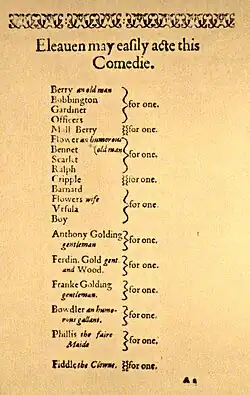 Eleauen may easily acte this
Comedie.
Berry an old man
Bobbington
Gardiner
Officers
for one.
Mall Berry for one.
Flower an humorous
Bennet (old man
Scarlet
Ralph
for one.
Cripple for one.
Barnard
Flowers wife
Vrsula
Boy
for one.
Anthony Golding
gentleman
for one,
Ferdin. Gold gent.
and Wood.
for one.
Franke Golding
gentleman.
for one.
Bowdler an humo-
rous gallant.
for one.
Phillis the faire
Maide
for one,
Fiddle the Clowne. for one.
A 2